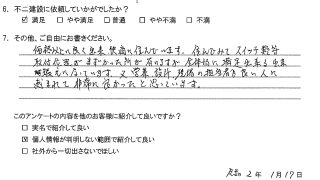 6. 不二建設に依頼していかがでしたか？
☑ 満足 □ やや満足 □ 普通 □ やや不満 □ 不満
7. その他、ご自由にお書きください。
価格以上に良く出来、快適に住んでいます。住んでみてスイッチ等の
取付位置がまずかった所が有りますが全体的に満足出来る出来
だったと思っています。又営業、設計、現場の担当者も良い人に
恵まれて非常に良かったと思っています。
このアンケートの内容を他のお客様に紹介して良いですか？
□ 実名で紹介して良い
☑ 個人情報が判明しない範囲で紹介して良い
□ 社外から一切出さないでほしい
2 年 1 月 17 日